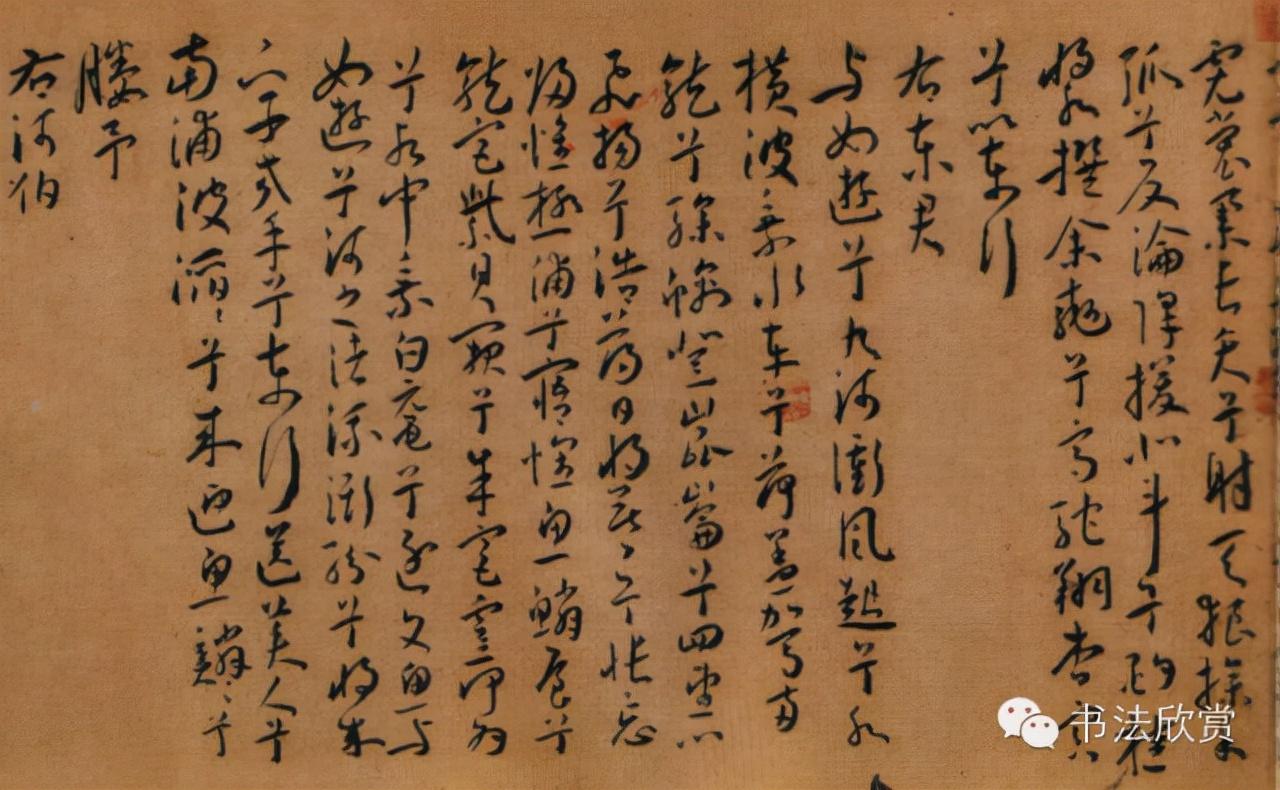 霓裳舉長矢兮射天狼操余
弧兮反淪降援北斗兮酌桂
漿撰余轡兮高駝翔杳冥
兮以東行
右東君
与女遊兮九河衝風起兮水
橫波乘水車兮荷蓋駕兩
龍兮驂螭登崑崙兮四望心
飛揚兮浩蕩日將暮兮悵忘
歸惟極浦兮寤懷魚鱗屋兮
龍堂紫貝闕兮朱宮靈何為
兮水中乘白黿兮逐文魚与
女遊兮河之渚流澌紛兮將來
下子交手兮東行送美人兮
南浦波滔〻兮來迎魚鱗〻兮
媵予
右河伯
书法欣赏